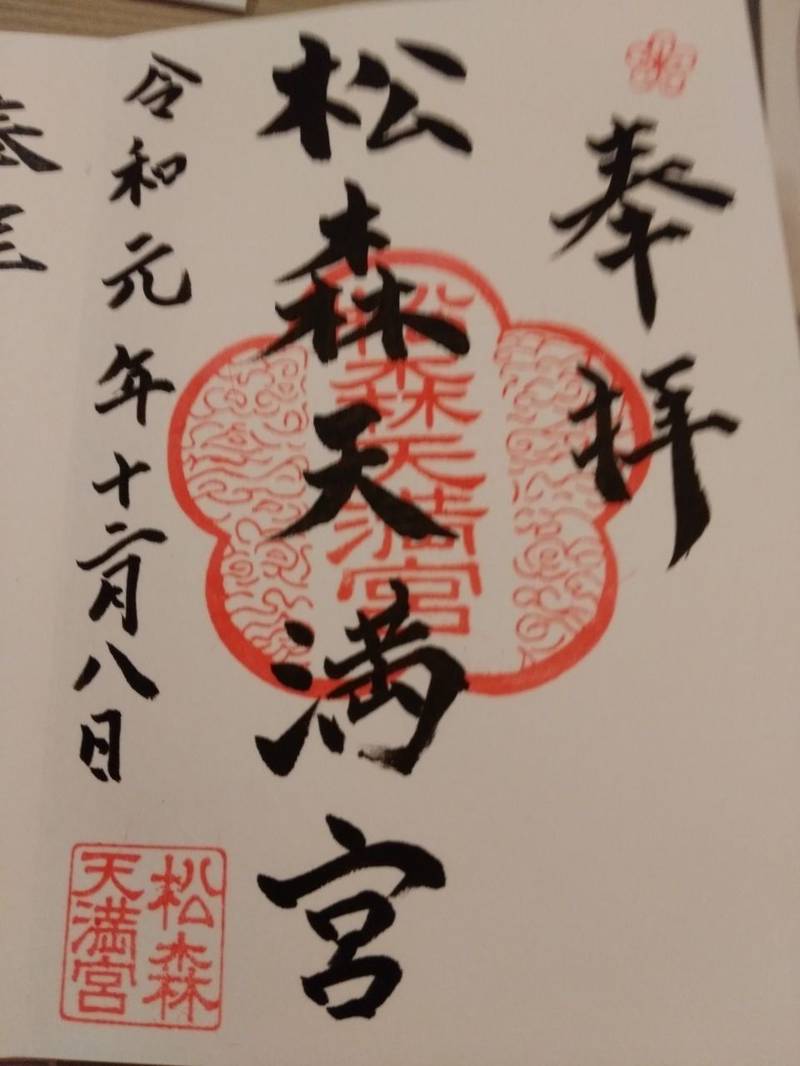 奉拝
松森天満宮
松森天満宮
令和元年十二月八日
松森
天満宮